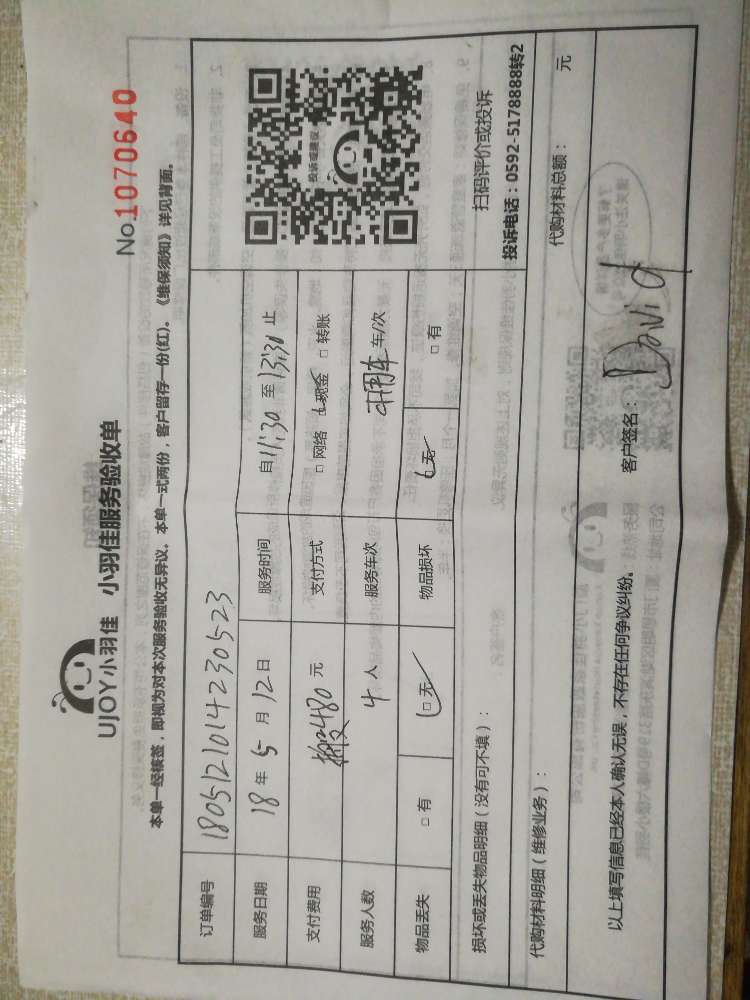 UJOY小羽佳 小羽佳服务验收单
No 1070640
本单一经核签，即视为对本次服务验收无异议。本单一式两份，客户留存一份(红)。《维保须知》详见背面。
订单编号 1805121014230523
服务日期 18 年 5 月 12 日 服务时间 自 11:30 至 13:30 止
支付费用 480 元 支付方式 □ 网络 □ 现金 □ 转账
服务人数 4 人 服务车次 不用车 车/次
物品丢失 □ 有 □ 无 物品损坏 □ 无 □ 有
投诉或建议
扫码评价或投诉
投诉电话：0592-5178888转2
损坏或丢失物品明细（没有可不填）：
代购材料明细（维修业务）： 代购材料总额： 元
以上填写信息已经本人确认无误，不存在任何争议纠纷。 客户签名： David